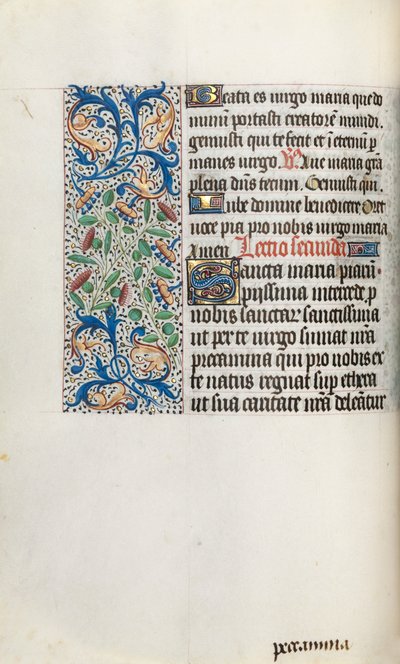 Beata es virgo maria que do
minū portasti creatorē mundi.
genuisti qui te fecit et ī eternū p
manes virgo. V̄s Aue maria grā
plena dn̄s tecum. Genuisti qui.
Iube domine benedicere Ort
uoce pia pro nobis virgo maria
Amen Lectio secunda
Sancta maria piarū
piissima intercede, p
nobis sanctar̄ sanctissima
ut per te virgo sumat nr̄a
precamina qui pro nobis ex
te natus regnat sup̄ ethera
ut sua caritate nr̄a deleātur
peccamina